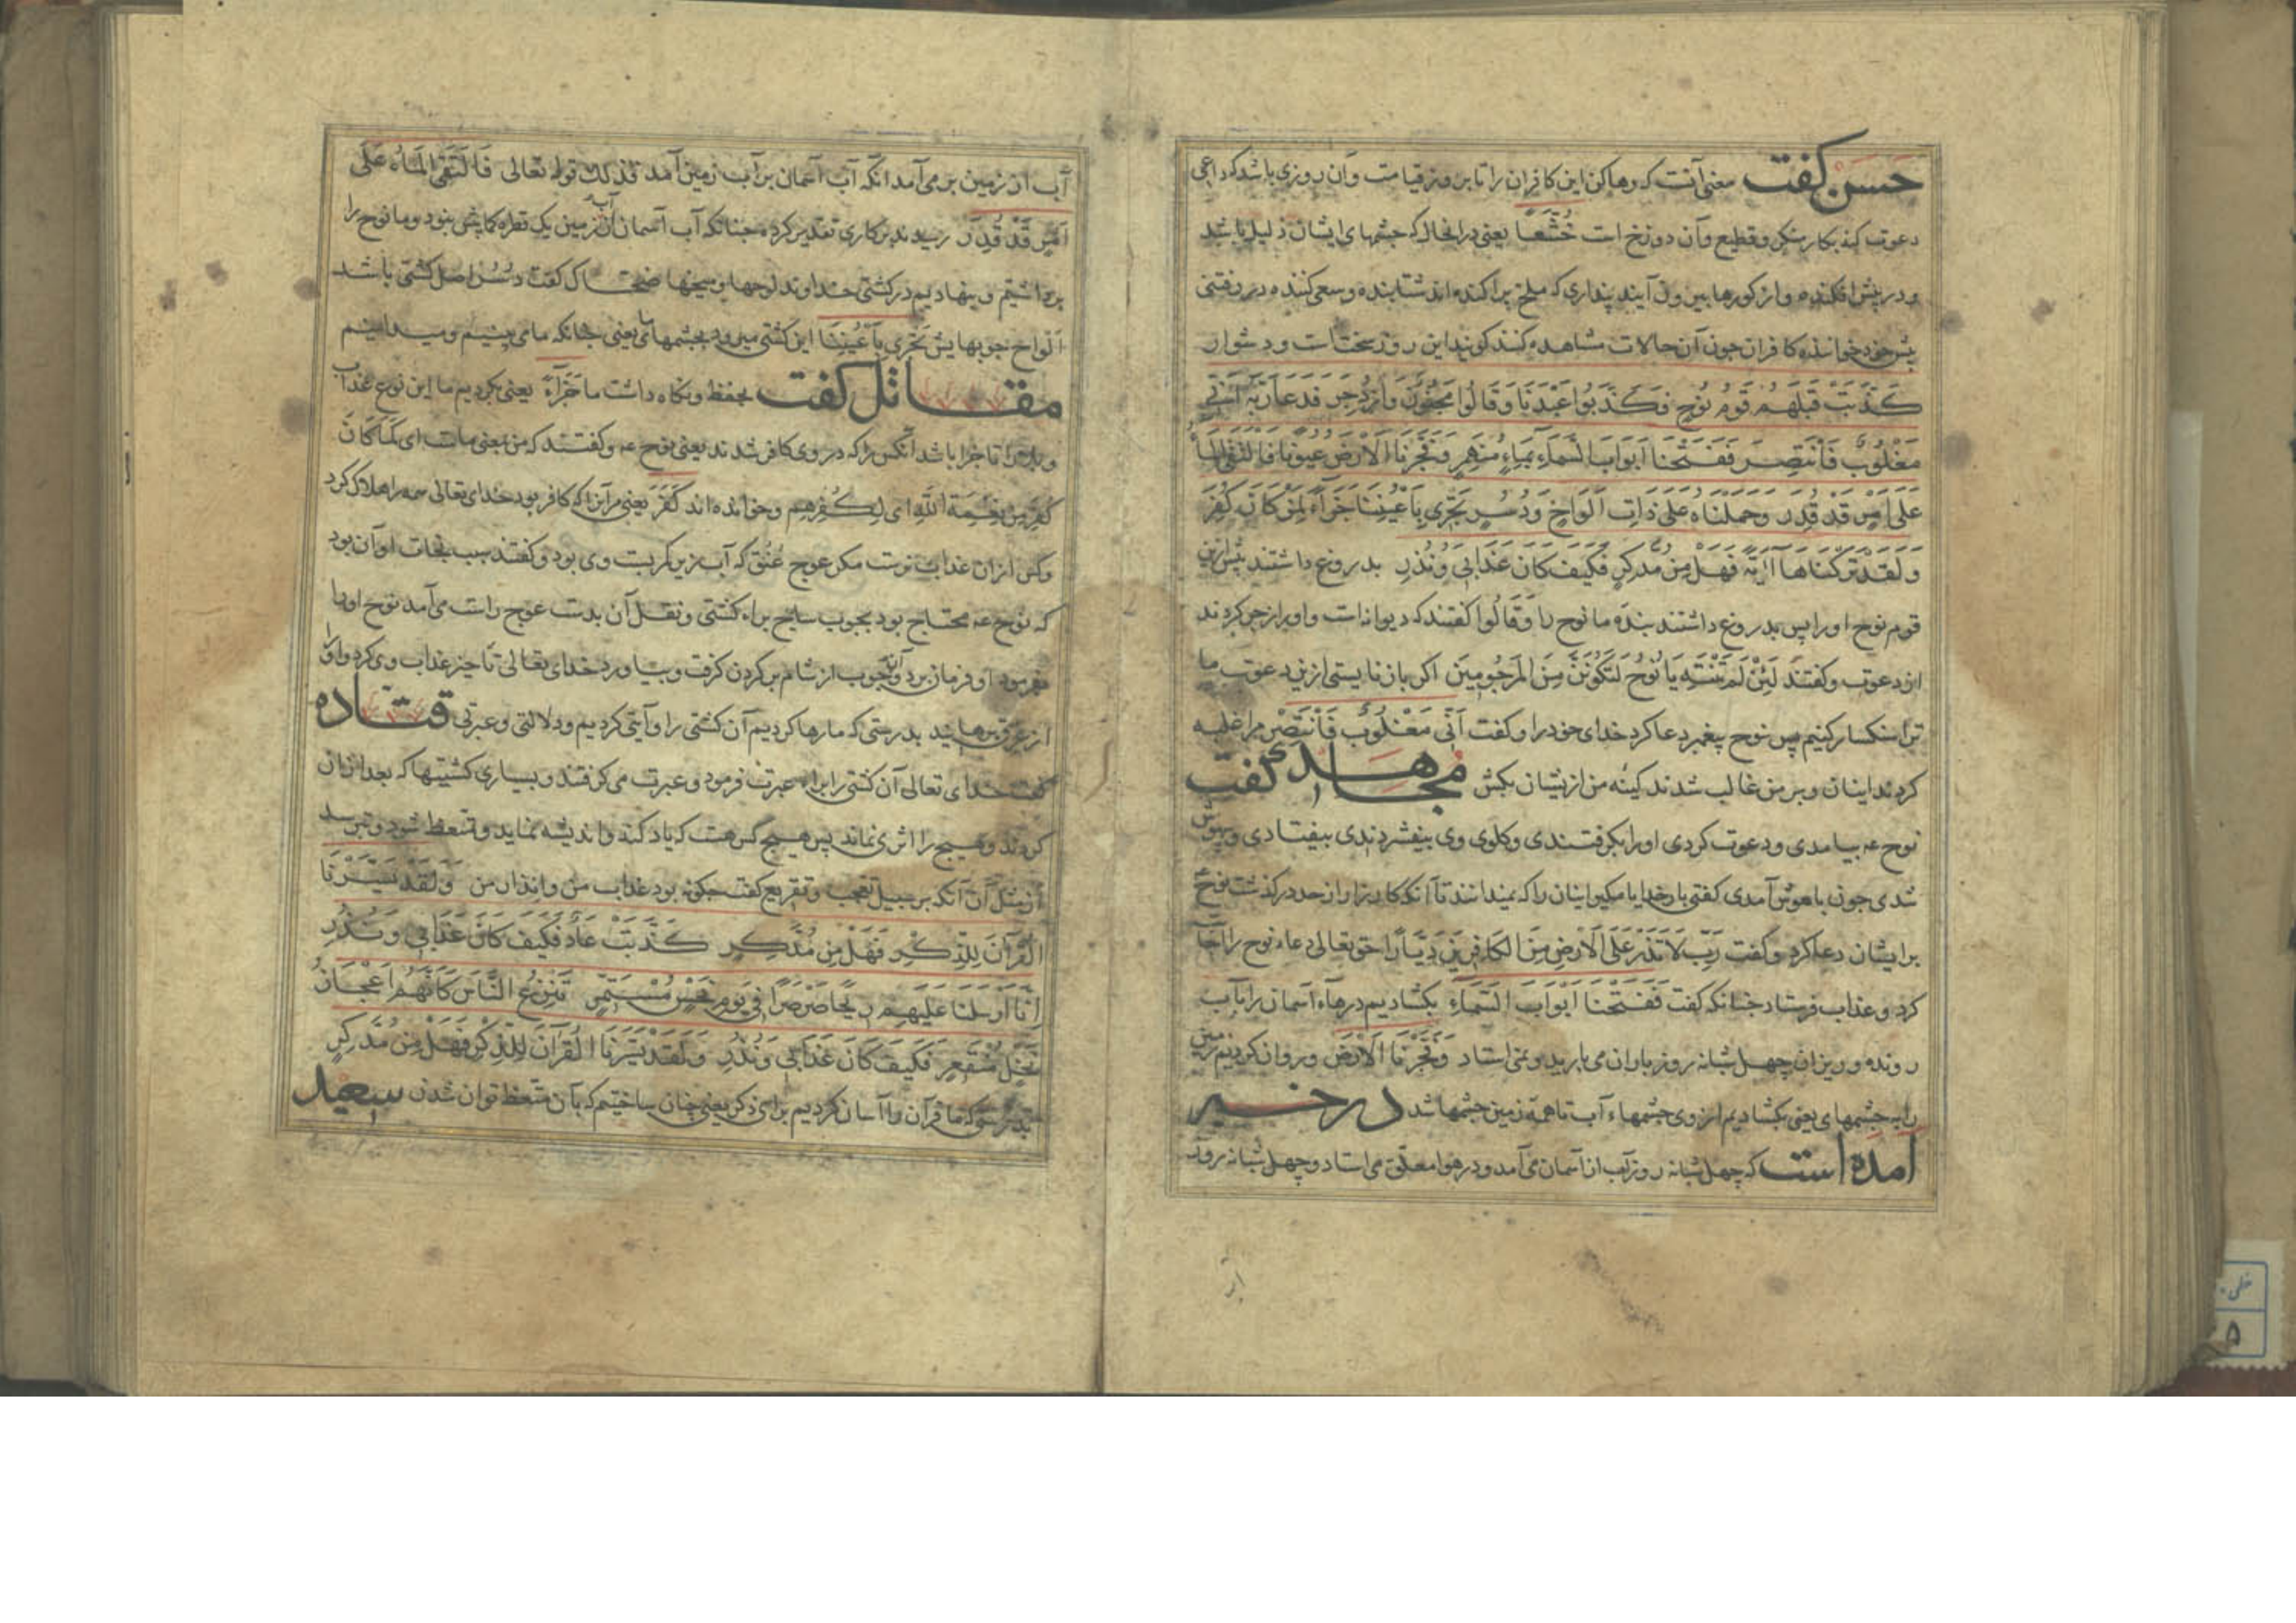 حَسَن کفت معنی آنست که رها کن این کافران را تا بروز قیامت وآن روزی باشد که داعی
دعوت کند بکار منکر و فظیع وآن دوزخ است خُشَّعًا یعنی در انحال که چشمهای ایشان ذلیل باشد
و در پیش افکنده و از کورها بیرون آیند پنداری که ملخ پراکنده اند شتابنده و سعی کننده در رفتن
پیش خود خواننده کافران چون آن حالات مشاهده کنند کویند این روز سختست و دشوار
کَذَّبَتْ قَبْلَهُمْ قَوْمُ نُوحٍ فَکَذَّبُوا عَبْدَنَا وَقَالُوا مَجْنُونٌ وَازْدُجِرَ فَدَعَا رَبَّهُ اَنِّی
مَغْلُوبٌ فَانْتَصِرْ فَفَتَحْنَا اَبْوَابَ السَّمَآءِ بِمَاءٍ مُنْهَمِرٍ وَفَجَّرْنَا الْاَرْضَ عُیُونًا فَالْتَقَی الْمَآءُ
عَلَی اَمْرٍ قَدْ قُدِرَ وَحَمَلْنَاهُ عَلَی ذَاتِ اَلْوَاحٍ وَدُسُرٍ تَجْرِی بِاَعْیُنِنَا جَزَآءً لِمَنْ کَانَ کُفِرَ
وَلَقَدْ تَرَکْنَاهَا آیَةً فَهَلْ مِنْ مُدَّکِرٍ فَکَیْفَ کَانَ عَذَابِی وَنُذُرِ بدروغ داشتند پیش ازین
قوم نوح اورا پس بدروغ داشتند بندهٔ ما نوح را وَقَالُوا کفتند که دیوانه است واورا زجر کردند
از دعوت وکفتند لَئِنْ لَمْ تَنْتَهِ یَا نُوحُ لَتَکُونَنَّ مِنَ الْمَرْجُومِینَ اکر بازنایستی ازین دعوت ما
ترا سنکسار کنیم پس نوح پیغمبر دعا کرد خدای خودرا وکفت اَنِّی مَغْلُوبٌ فَانْتَصِرْ مرا غلبه
کردند اینان وبر من غالب شدند کینهٔ من ازیشان بکش مُجاهد کفت
نوح عه بیامدی ودعوت کردی اورا بکرفتندی وکلوی وی بیفشردندی بیفتادی وبیهوش
شدی چون باهوش آمدی کفتی بارخدایا مکیر اینان را که نمیدانند تا آنکه کارزار از حد درکذشت نوح
برایشان دعا کرد وکفت رَبِّ لَا تَذَرْ عَلَی الْاَرْضِ مِنَ الْکَافِرِینَ دَیَّارًا حق تعالی دعاء نوح را اجابت
کرد وعذاب فرستاد چنانکه کفت فَفَتَحْنَا اَبْوَابَ السَّمَآءِ بکشادیم درهاء آسمان را بآب
رونده و ریزان چهل شبانه روز باران می بارید ونمی استاد وَفَجَّرْنَا الْاَرْضَ وروان کردیم زمین
را به چشمهای یعنی بکشادیم از وی چشمهاء آب تا همهٔ زمین چشمها شد در خبر
آمده است که چهل شبانه روز آب از آسمان می آمد ودر هوا معلق می استاد وچهل شبانه روز
آب از زمین بر می آمد آنکه آب آسمان بر آب زمین آمد فذلک قوله تعالی فَالْتَقَی الْمَآءُ عَلَی
اَمْرٍ قَدْ قُدِرَ رسیدند بر کاری تقدیر کرده چنانکه آب آسمان از آب زمین یک قطره کمابیش نبود وما نوح را
برداشتیم وبنهادیم در کشتی خداوند لوحها ومیخها ضحاک کفت دُسُر اصل کشتی باشد
اَلْوَاح چوبهایش تَجْرِی بِاَعْیُنِنَا این کشتی میرود بچشمهاء ما یعنی چنانکه ما می بینیم ومیدانیم
مقاتل کفت بحفظ ونکاه داشت ما جَزَآءً یعنی بکردیم ما این نوع عذاب
تا جزا باشد آنکس را که در وی کافر شدند یعنی نوح عه وکفتند که من بمعنی ماست ای لِمَا کَانَ
کُفِرَ مِنْ نِعْمَةِ اللهِ ای لِکُفْرِهِم وخوانده اند کَفَرَ یعنی مر آنرا که کافر بود خدای تعالی همه را هلاک کرد
وکس از آن عذاب نرست مکر عوج عُنُق که آب زیر کمربست وی بود وکفتند سبب نجات او آن بود
که نوح عه محتاج بود بچوب ساج براء کشتی ونقل آن بدست عوج راست می آمد نوح اورا
بفرمود او فرمان برد وآن چوب از شام بر کردن کرفت وبیاورد خدای تعالی تا چیز عذاب وی کرد واورا
از غرق برهانید بدرستی که ما رها کردیم آن کشتی را وآیتی کردیم ودلالتی وعبرتی قتاده
کفت خدای تعالی آن کشتی را براء عبرت فرمود وعبرت می کرفتند وبسیاری کشتیها که بعد از آن
کردند وهیچ را اثری نماند پس هیچ کس هست که یاد کند واندیشه نماید ومتعظ شود وترسد
از مثل آن آنکه بر سبیل تعجب وتقریع کفت چکونه بود عذاب من وانذار من وَلَقَدْ یَسَّرْنَا
الْقُرْآنَ لِلذِّکْرِ فَهَلْ مِنْ مُدَّکِرٍ کَذَّبَتْ عَادٌ فَکَیْفَ کَانَ عَذَابِی وَنُذُرِ
اِنَّا اَرْسَلْنَا عَلَیْهِمْ رِیحًا صَرْصَرًا فِی یَوْمِ نَحْسٍ مُسْتَمِرٍّ تَنْزِعُ النَّاسَ کَاَنَّهُمْ اَعْجَازُ
نَخْلٍ مُنْقَعِرٍ فَکَیْفَ کَانَ عَذَابِی وَنُذُرِ وَلَقَدْ یَسَّرْنَا الْقُرْآنَ لِلذِّکْرِ فَهَلْ مِنْ مُدَّکِرٍ
بدرستی که ما قرآن را آسان کردیم برای ذکر یعنی چنان ساختیم که بآن متعظ توان شدن سعید
۵